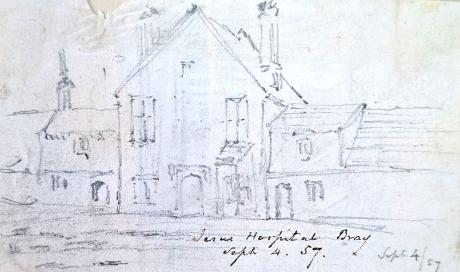 Jesus Hospital Bray
Sept 4. 57.
Sept 4/57